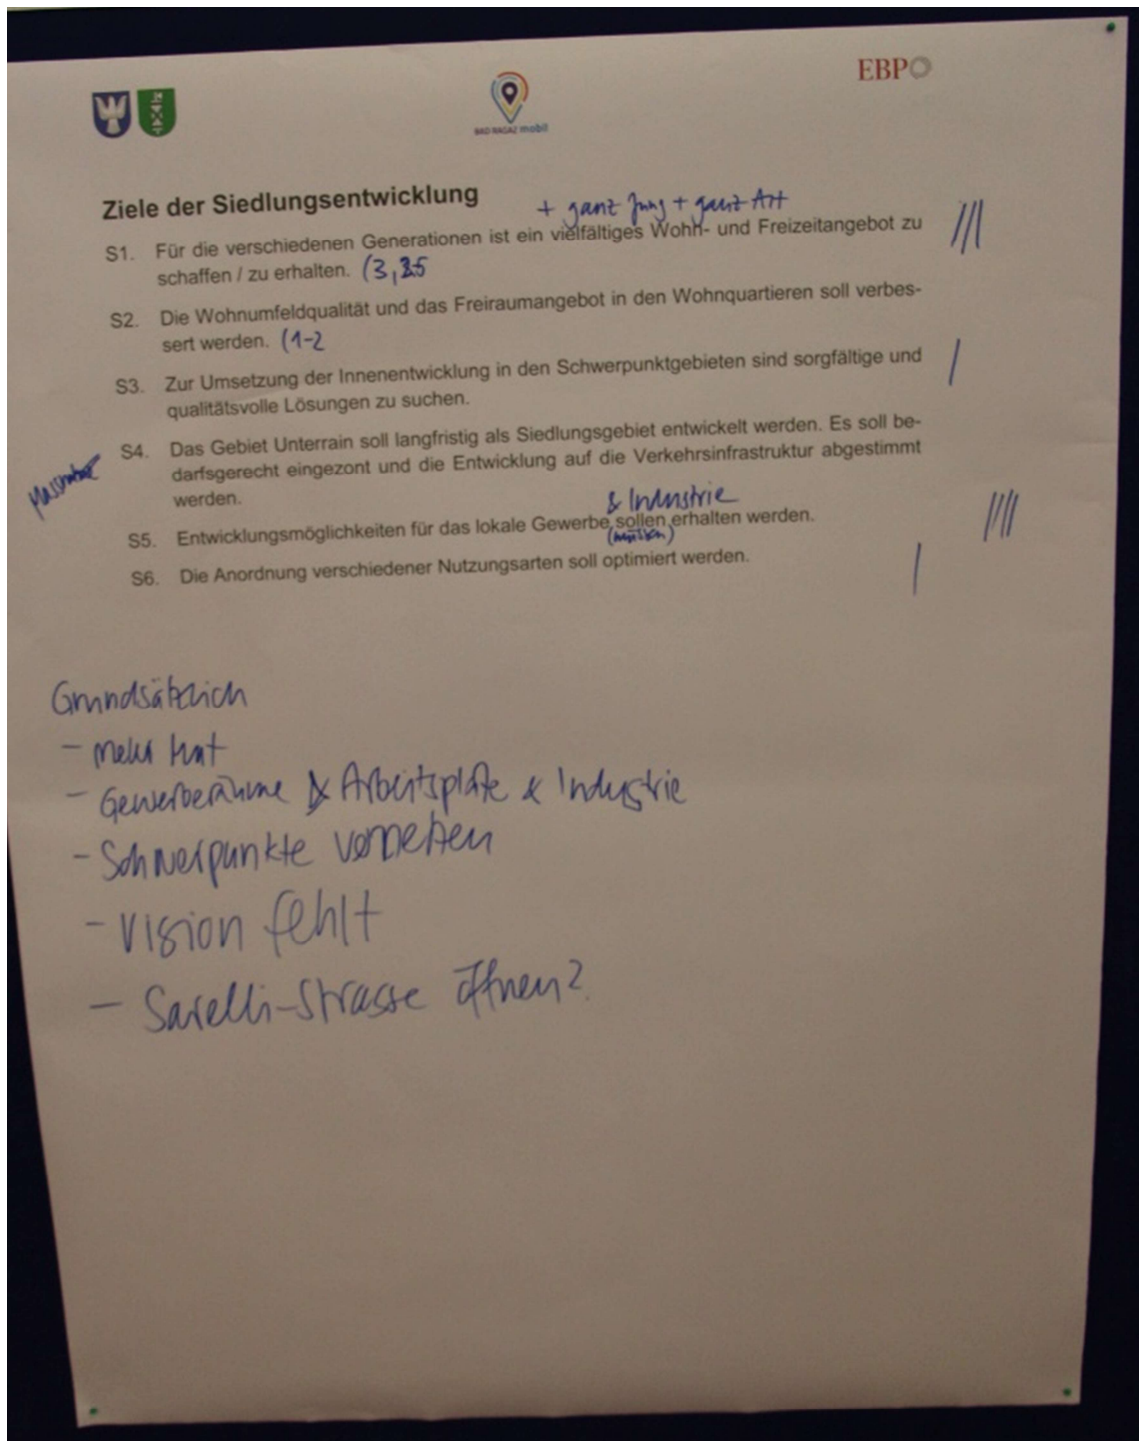 EBP
BAD RAGAZ mobil
Ziele der Siedlungsentwicklung
+ ganz Jung + ganz Alt
S1. Für die verschiedenen Generationen ist ein vielfältiges Wohn- und Freizeitangebot zu
schaffen / zu erhalten. (3,
S2. Die Wohnumfeldqualität und das Freiraumangebot in den Wohnquartieren soll verbes-
sert werden. (1-2
S3. Zur Umsetzung der Innenentwicklung in den Schwerpunktgebieten sind sorgfältige und
qualitätsvolle Lösungen zu suchen.
S4. Das Gebiet Unterrain soll langfristig als Siedlungsgebiet entwickelt werden. Es soll be-
darfsgerecht eingezont und die Entwicklung auf die Verkehrsinfrastruktur abgestimmt
werden.
& Industrie
S5. Entwicklungsmöglichkeiten für das lokale Gewerbe sollen erhalten werden.
(müssen)
S6. Die Anordnung verschiedener Nutzungsarten soll optimiert werden.
Grundsätzlich
- mehr Mut
- Gewerberäume & Arbeitsplätze & Industrie
- Schwerpunkte
- Vision fehlt
- Sarelli-Strasse öffnen?